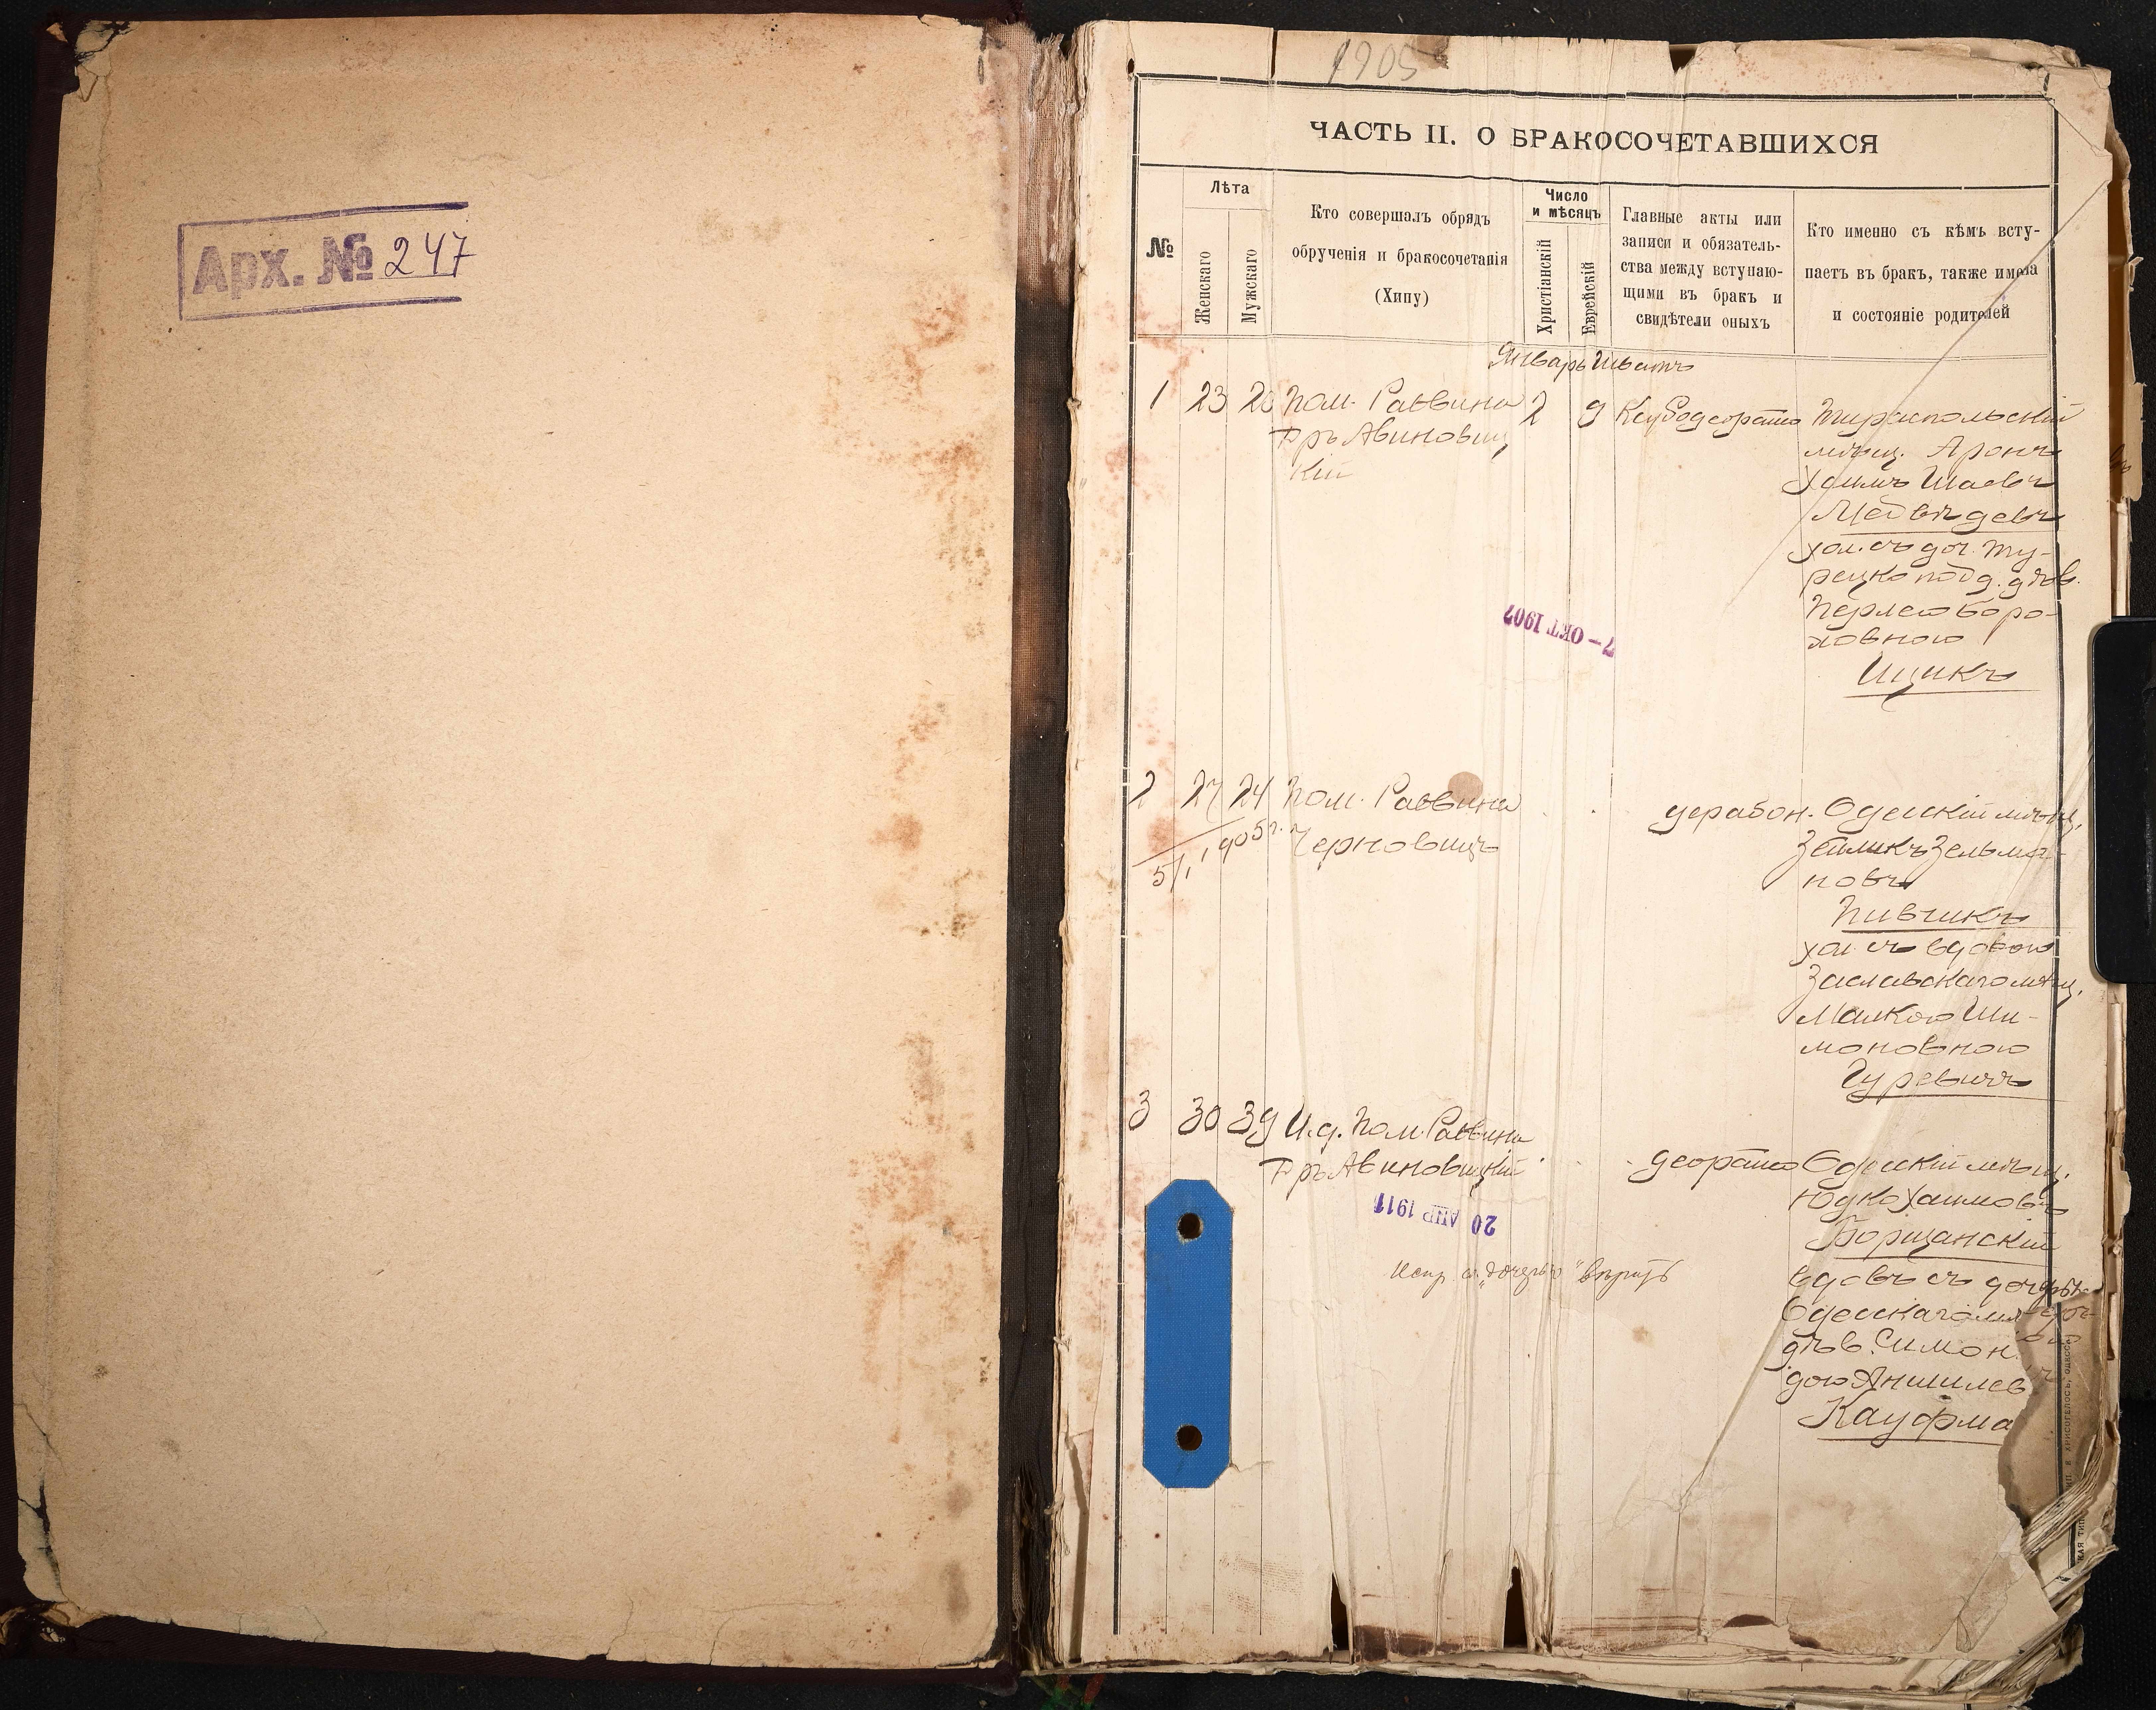 Арх. № 247
1905
ЧАСТЬ II. О БРАКОСОЧЕТАВШИХСЯ
№
Лѣта
Женскаго
Мужскаго
Кто совершалъ обрядъ
обрученія и бракосочетанія
(Хипу)
Число
и мѣсяцъ
Христіанскій
Еврейскій
Главные акты или
записи и обязатель-
ства между вступаю-
щими въ бракъ и
свидѣтели оныхъ
Кто именно съ кѣмъ всту-
паетъ въ бракъ, также имена
и состояніе родителей
Январь Шватъ
1 23 20 Пом. Раввина 2 9
Гръ Авиновиц
кій
Тираспольскій
мѣщ. Аронъ
Хаимъ Шаевъ
Медвѣдевъ
хол. съ доч. ту-
рецко подд. дѣв.
Перлею Боро-
ховною
Ицикъ
7 - ОКТ 1907
2 27 24 Пом. Раввина
Черновицъ
5/I 1905 г.
дерабон. Одесскій мѣщ.
Зейликъ Зельма-
новъ
Пивчикъ
хол. съ вдовою
Заславскаго мѣщ.
Малкою Ши-
моновною
Гуревичъ
3 30 39 И.д. Пом. Раввина
Гръ Авиновицкій
20 АПР 1911
Испр. съ „дочерью" вѣрить
деорайсо Одесскій мѣщ.
Юдко Хаимовъ
Борщанскій
вдовъ съ дочерью
Одесскаго
дѣв. Симон
дою Аншилев
Кауфма